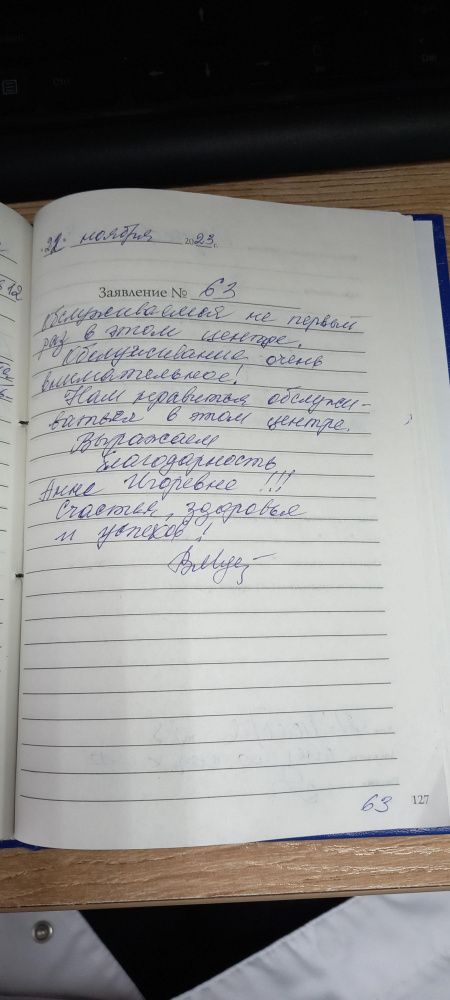 "21" ноября 2023 г.
Заявление № 63
Обслуживаемся не первый
раз в этом центре.
Обслуживание очень
внимательное!
Нам нравиться обслужи-
ваться в этом центре.
Выражаем
благодарность
Анне Игоревне !!!
Счастья, здоровья
и успехов!
63 127